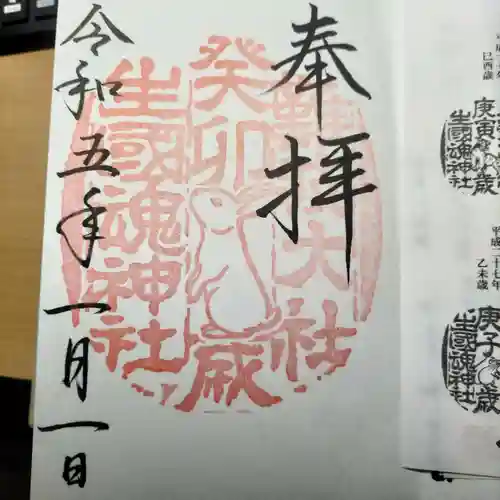 奉拝
癸卯歳
大社
生國魂神社
令和五年一月一日
巳酉歳
庚寅 歳
生國魂神社
平成二十七年
乙未歳
庚子歳
生國魂神社